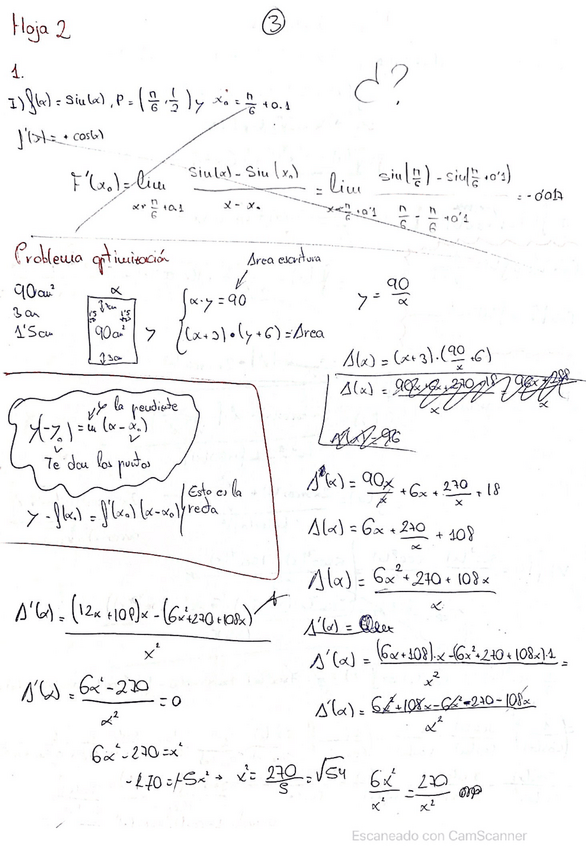 Hoja 2
3
1.
I) f(x) = Sin(x), P = (π/6, 1/2) y x₀ = π/6 + 0.1
d?
f'(x) = + cos(x)
F'(x₀) = lim x→π/6+0.1 (Sin(x) - Sin(x₀))/(x - x₀) = lim x→π/6+0'1 (sin(π/6) - sin(π/6+0'1))/(π/6 - π/6+0'1) = -0'017
Problema optimización
Area escritura
90cm²
3 cm
1'5cm
x
3cm
1'5
1'5
90cm²
3cm
y
x·y = 90
(x+3)·(y+6) = Area
y = 90/x
A(x) = (x+3)·(90/x + 6)
A(x) =
A(x) = 96
y la pendiente
y(-y₀) = m (x - x₀)
Te dan los puntos
y - f(x₀) = f'(x₀)(x-x₀)
Esto es la recta
A(x) = 90x/x + 6x + 270/x + 18
A(x) = 6x + 270/x + 108
A(x) = (6x² + 270 + 108x)/x
A'(x) =
A'(x) = ((12x+108)x - (6x²+270+108x))/x²
A'(x) = ((6x+108)·x - (6x²+270+108x)·1)/x² =
A'(x) = (6x² - 270)/x² = 0
A'(x) = (6x²+108x-6x²-270-108x)/x²
6x² - 270 = x²
-270 = -5x² → x² = 270/5 = √54
6x²/x² = 270/x²
Escaneado con CamScanner